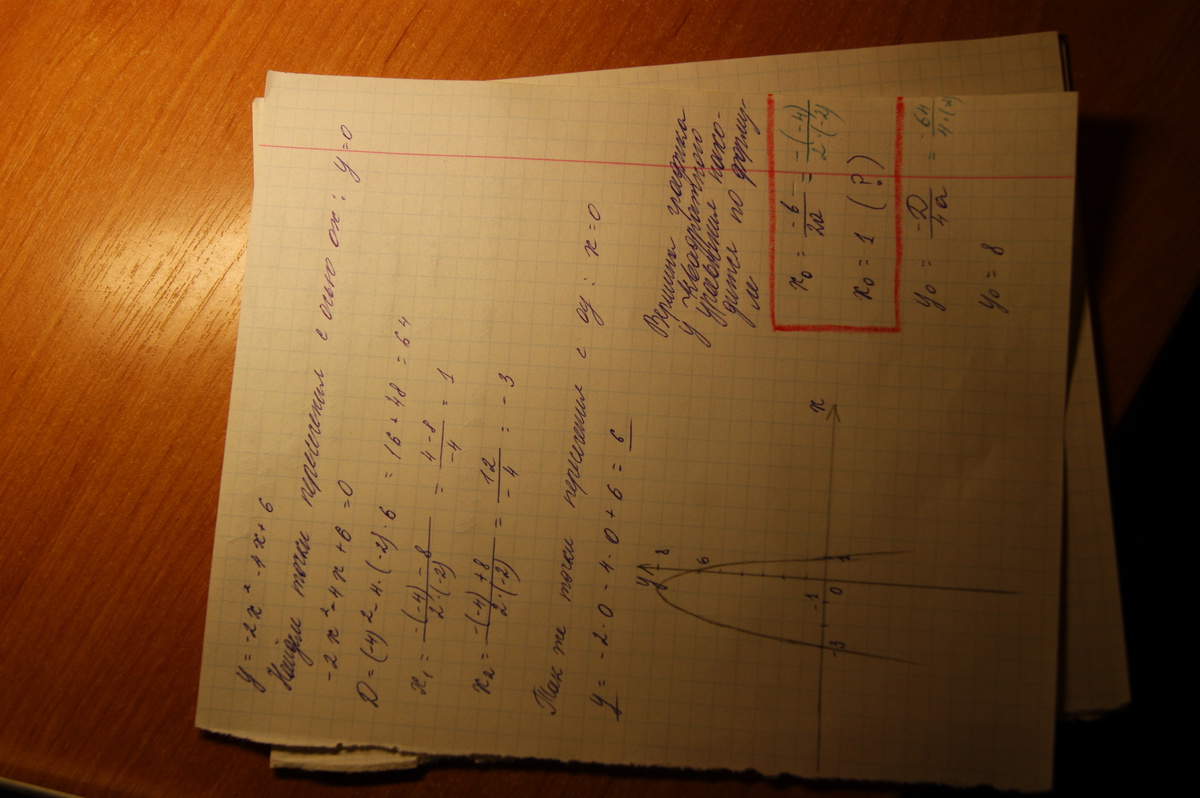 y = -2x² - 4x + 6
Найдем точки пересечения с осью ox: y=0
-2x² - 4x + 6 = 0
D = (-4)2 - 4·(-2)·6 = 16 + 48 = 64
x₁ = -(-4) - 8 / 2·(-2) = 4-8 / -4 = 1
x₂ = -(-4) + 8 / 2·(-2) = 12 / -4 = -3
Так же точки пересечения с oy: x=0
y = -2·0 - 4·0 + 6 = 6
y
8
6
-3
-1
0
1
x
Вершины графика
у квадратного
уравнения нахо-
дится по форму-
ле
x₀ = -b / 2a = -(-4) / 2·(-2)
x₀ = 1 (?)
y₀ = -D / 4a = -64 / 4·(-2)
y₀ = 8